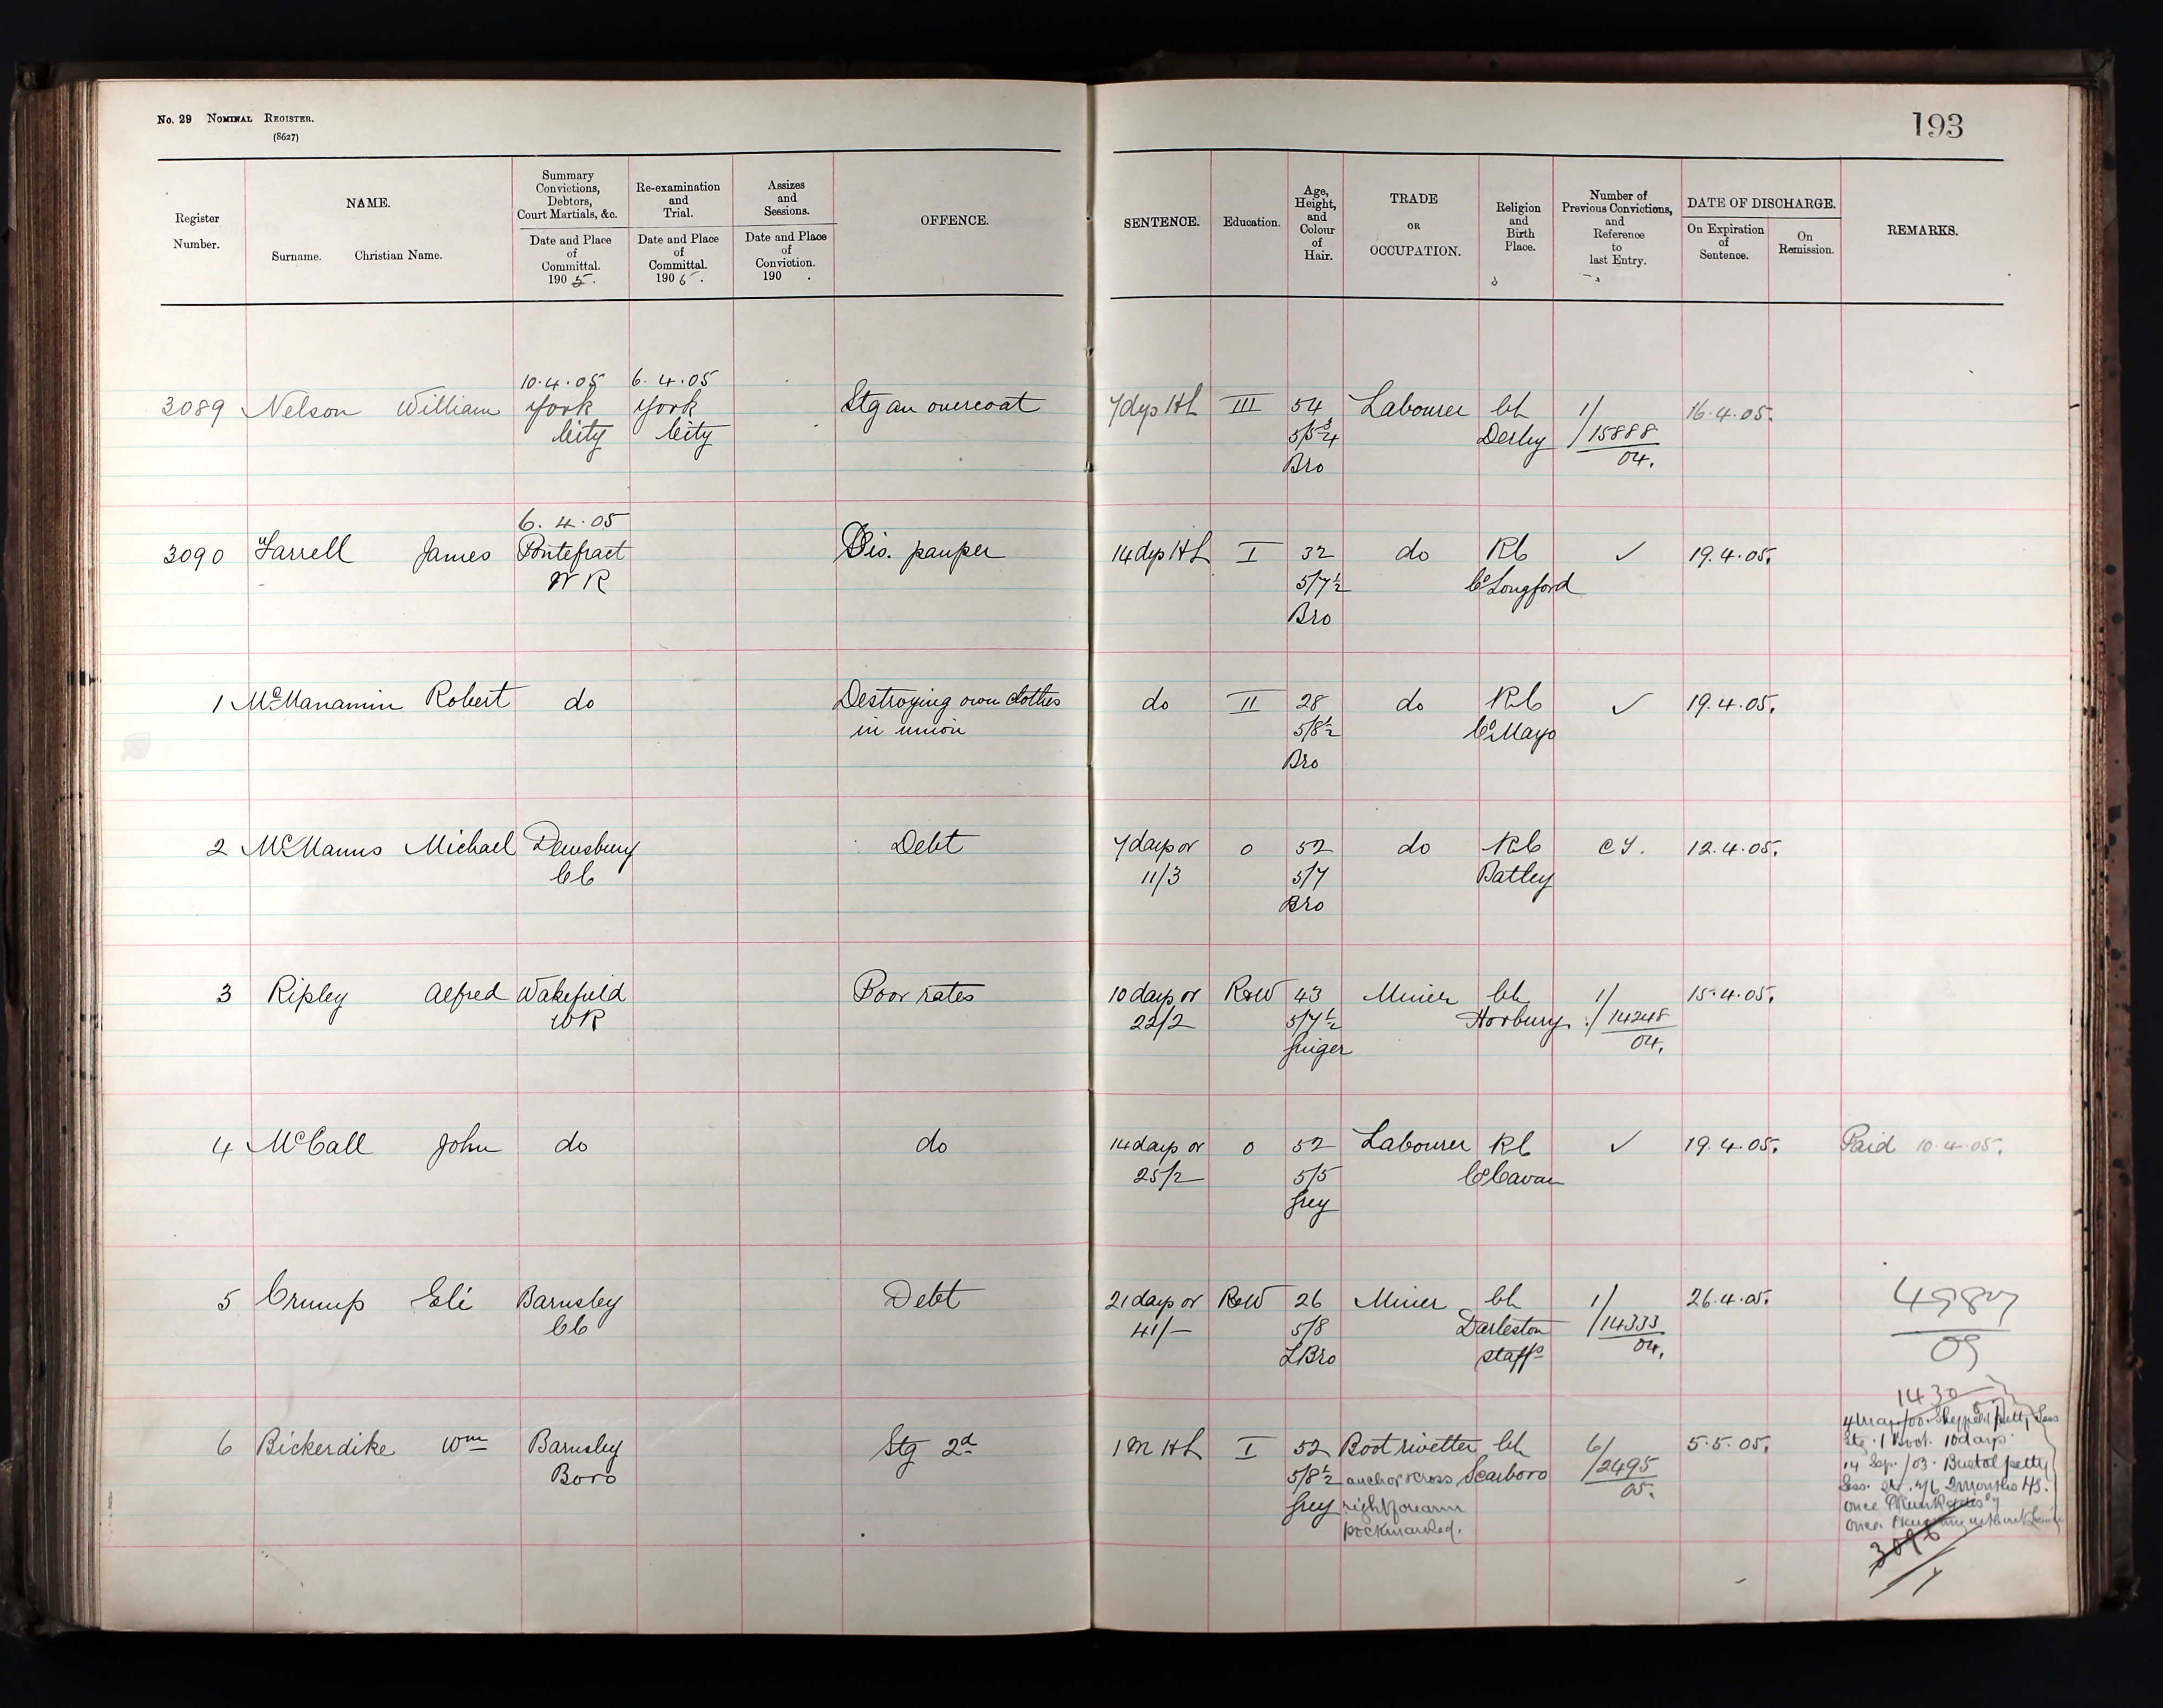 No. 29 NOMINAL REGISTER.
(8627)
193
Register Number.
NAME.
Surname. Christian Name.
Summary Convictions, Debtors, Court Martials, &c.
Date and Place of Committal. 1905.
Re-examination and Trial.
Date and Place of Committal. 1905.
Assizes and Sessions.
Date and Place of Conviction. 190 .
OFFENCE.
SENTENCE.
Education.
Age, Height, and Colour of Hair.
TRADE OR OCCUPATION.
Religion and Birth Place.
Number of Previous Convictions, and Reference to last Entry.
DATE OF DISCHARGE.
On Expiration of Sentence.
On Remission.
REMARKS.
10.4.05 6.4.05
3089 Nelson William York York Stg an overcoat 7 dys HL III 54 Labourer Ch 1/ 16.4.05.
City City 5/5¾ Derby 15888
Bro 04.
6.4.05
3090 Farrell James Pontefract Dis. pauper 14 dys HL I 32 do RC ✓ 19.4.05.
WR 5/7½ Co Longford
Bro
1 McManamin Robert do Destroying own clothes do II 28 do RC ✓ 19.4.05.
in union 5/8½ Co Mayo
Bro
2 McManus Michael Dewsbury Debt 7 days or 0 52 do RC 12.4.05.
CC 11/3 5/7 Batley
Bro
3 Ripley Alfred Wakefield Poor rates 10 days or R&W 43 Miner Ch 1/ 15.4.05.
WR 22/2 5/7½ Horbury 14248
Ginger 04.
4 McCall John do do 14 days or 0 52 Labourer RC ✓ 19.4.05. Paid 10.4.05.
25/2 5/5 Co Cavan
Grey
5 Crump Eli Barnsley Debt 21 days or R&W 26 Miner Ch 1/ 26.4.05.
CC 41/- 5/8 Darleston 14333
L Bro Staffs 04.
09
1430
6 Bickerdike Wm Barnsley Stg 2d 1 M HL I 52 Boot rivetter Ch 6/ 5.5.05.
Boro 5/8½ anchor cross Scarboro 2495
Grey right forearm 05.
pockmarked.
Stg 1 Boot. 10 days.
14 Sep./03. Bristol petty
3096